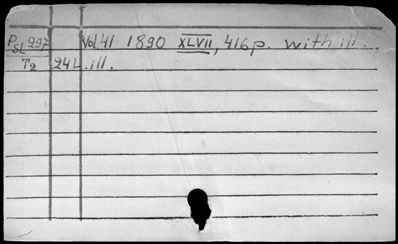 P SL 297 Vol. 41 1890 XLVII, 416 p. with ill.,
T2 24 L. ill.